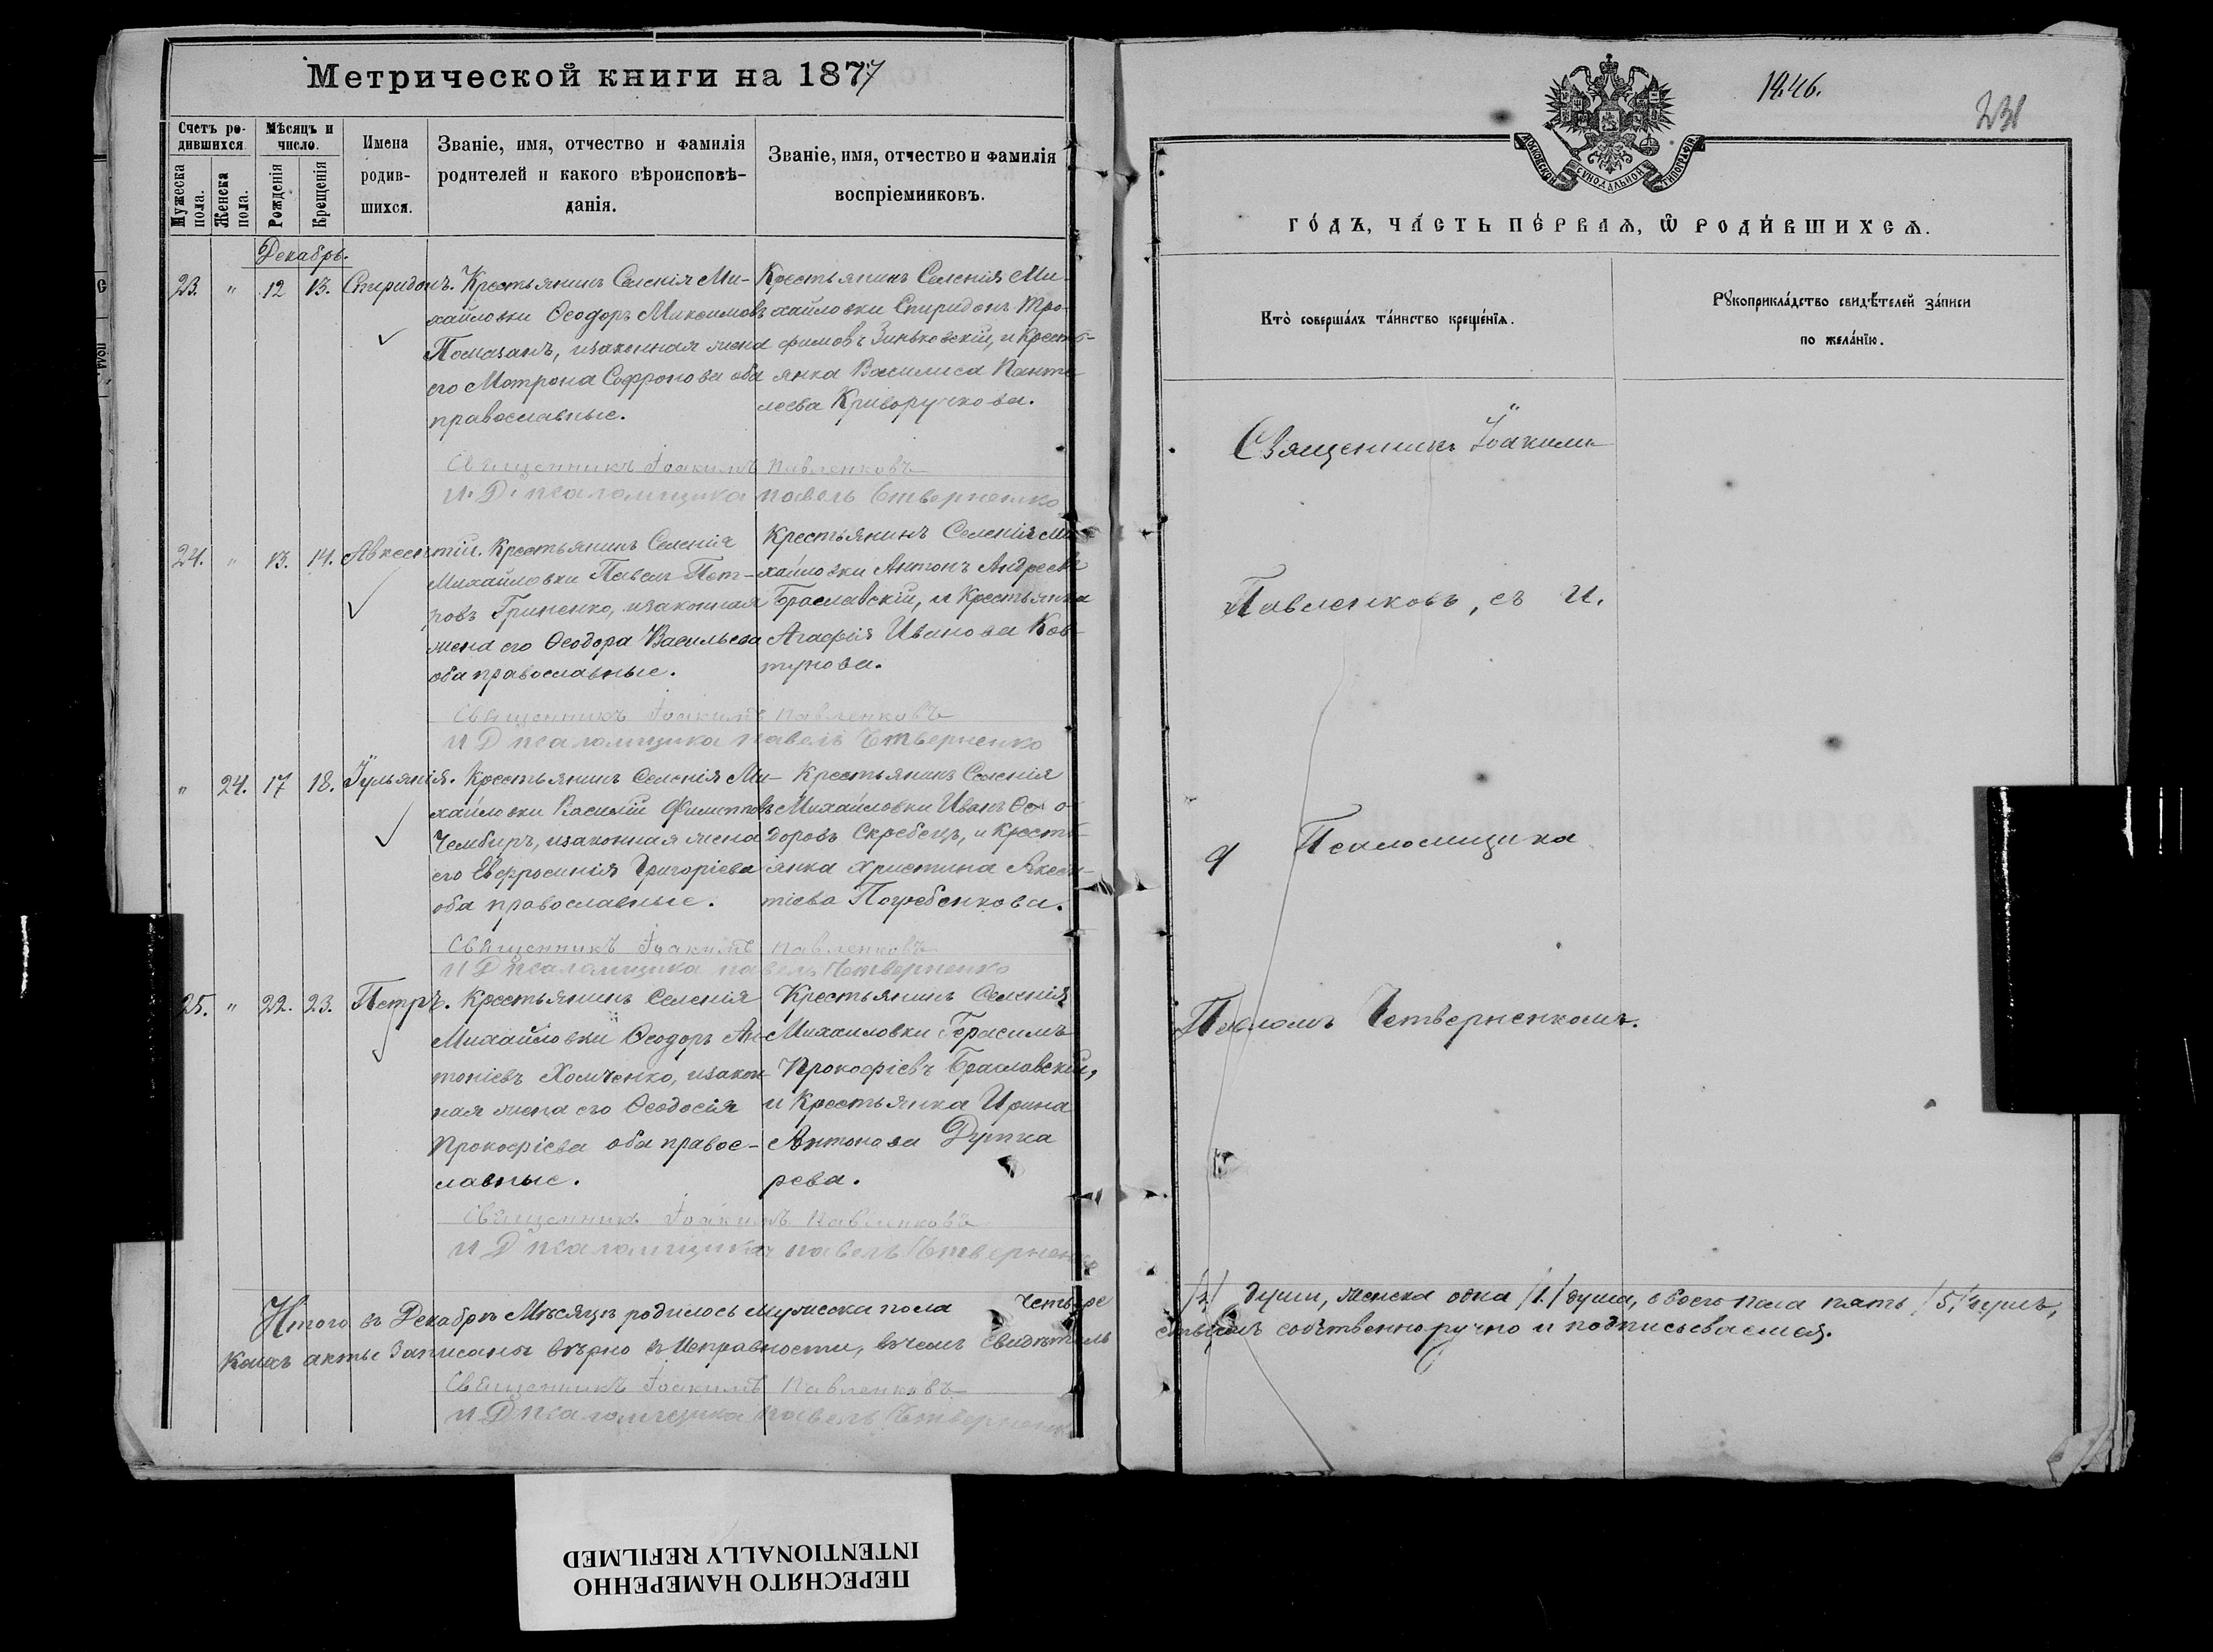 Метрической книги на 1877
Счетъ ро-
дившихся
Мужеска
пола.
Женска
пола.
Мѣсяцъ и
число.
Рожденія
Крещенія
Имена
родив-
шихся.
Званіе, имя, отчество и фамилія
родителей и какого вѣроисповѣ-
данія.
Званіе, имя, отчество и фамилія
воспріемниковъ.
Декабрь.
23. " 12 13. Спиридонъ.
Крестьянинъ Селенія Ми-
хайловки Ѳеодоръ Максимовъ
Помазанъ, и законная жена
его Матрона Софронова оба
православные.
Крестьянинъ Селенія Ми-
хайловки Спиридонъ Тро-
фимовъ Зиньковскій, и Кресть-
янка Василиса Панте
леева Криворучкова.
Священникъ Іоакимъ Павленковъ
И. Д. псаломщика Павелъ Четверненко
24. " 13. 14. Авксентій.
Крестьянинъ Селенія
Михайловки Павелъ Пет-
ровъ Гриненко, и законная
жена его Ѳеодора Васильева
оба православные.
Крестьянинъ Селенія Ми-
хайловки Антонъ Андреевъ
Браславскій, и Крестьянка
Агафія Иванова Ков-
тунова.
Священникъ Іоакимъ Павленковъ
И Д псаломщика Павелъ Четверненко
" 24. 17 18. Іульянія.
Крестьянинъ Селенія Ми-
хайловки Василій Филипповъ
Чембиръ, и законная жена
его Евфросинія Григоріева
оба православные.
Крестьянинъ Селенія
Михайловки Иванъ Ѳео-
доровъ Скребецъ, и Кресть-
янка Христина Авксен-
тіева Погребенкова.
Священникъ Іоакимъ Павленковъ
И Д псаломщика Павелъ Четверненко
25. " 22. 23. Петръ.
Крестьянинъ Селенія
Михайловки Ѳеодоръ Ан-
тоніевъ Хомченко, и закон
ная жена его Ѳеодосія
Прокофіева оба правос-
лавные.
Крестьянинъ Селенія
Михаиловки Герасимъ
Прокофіевъ Браславскій,
и Крестьянка Ирина
Антонова Дупча
рева.
Священникъ Іоакимъ Павленковъ
И Д псаломщика Павелъ Четверненко
Итого въ Декабрѣ Мѣсяцѣ родилось мужеска пола Четыре
акты записаны вѣрно въ исправности, въ чемъ свидѣтель
Священникъ Іоакимъ Павленковъ
И Д псаломщика Павелъ Четверненко
231
МОСКОВСКОЙ СѴНОДАЛЬНОЙ ТИПОГРАФІИ
ГО́ДЪ, ЧА́СТЬ ПЕ́РВАѦ, Ѡ РОДИ́ВШИХСѦ.
Кто̀ соверша́лъ та́инство креще́нїѧ.
Рꙋкоприкла́дство свидѣ́телей за́писи
по жела́нїю.
Священникъ Іоакимъ
Павленковъ, съ И.
Д Псаломщика
Павломъ Четверненкомъ.
/4/ души, женска одна /1./ душа, обоего пола пять /5,/ душъ,
ствуемъ собственноручно и подписываемся.
ПЕРЕСНЯТО НАМЕРЕННО
INTENTIONALLY REFILMED